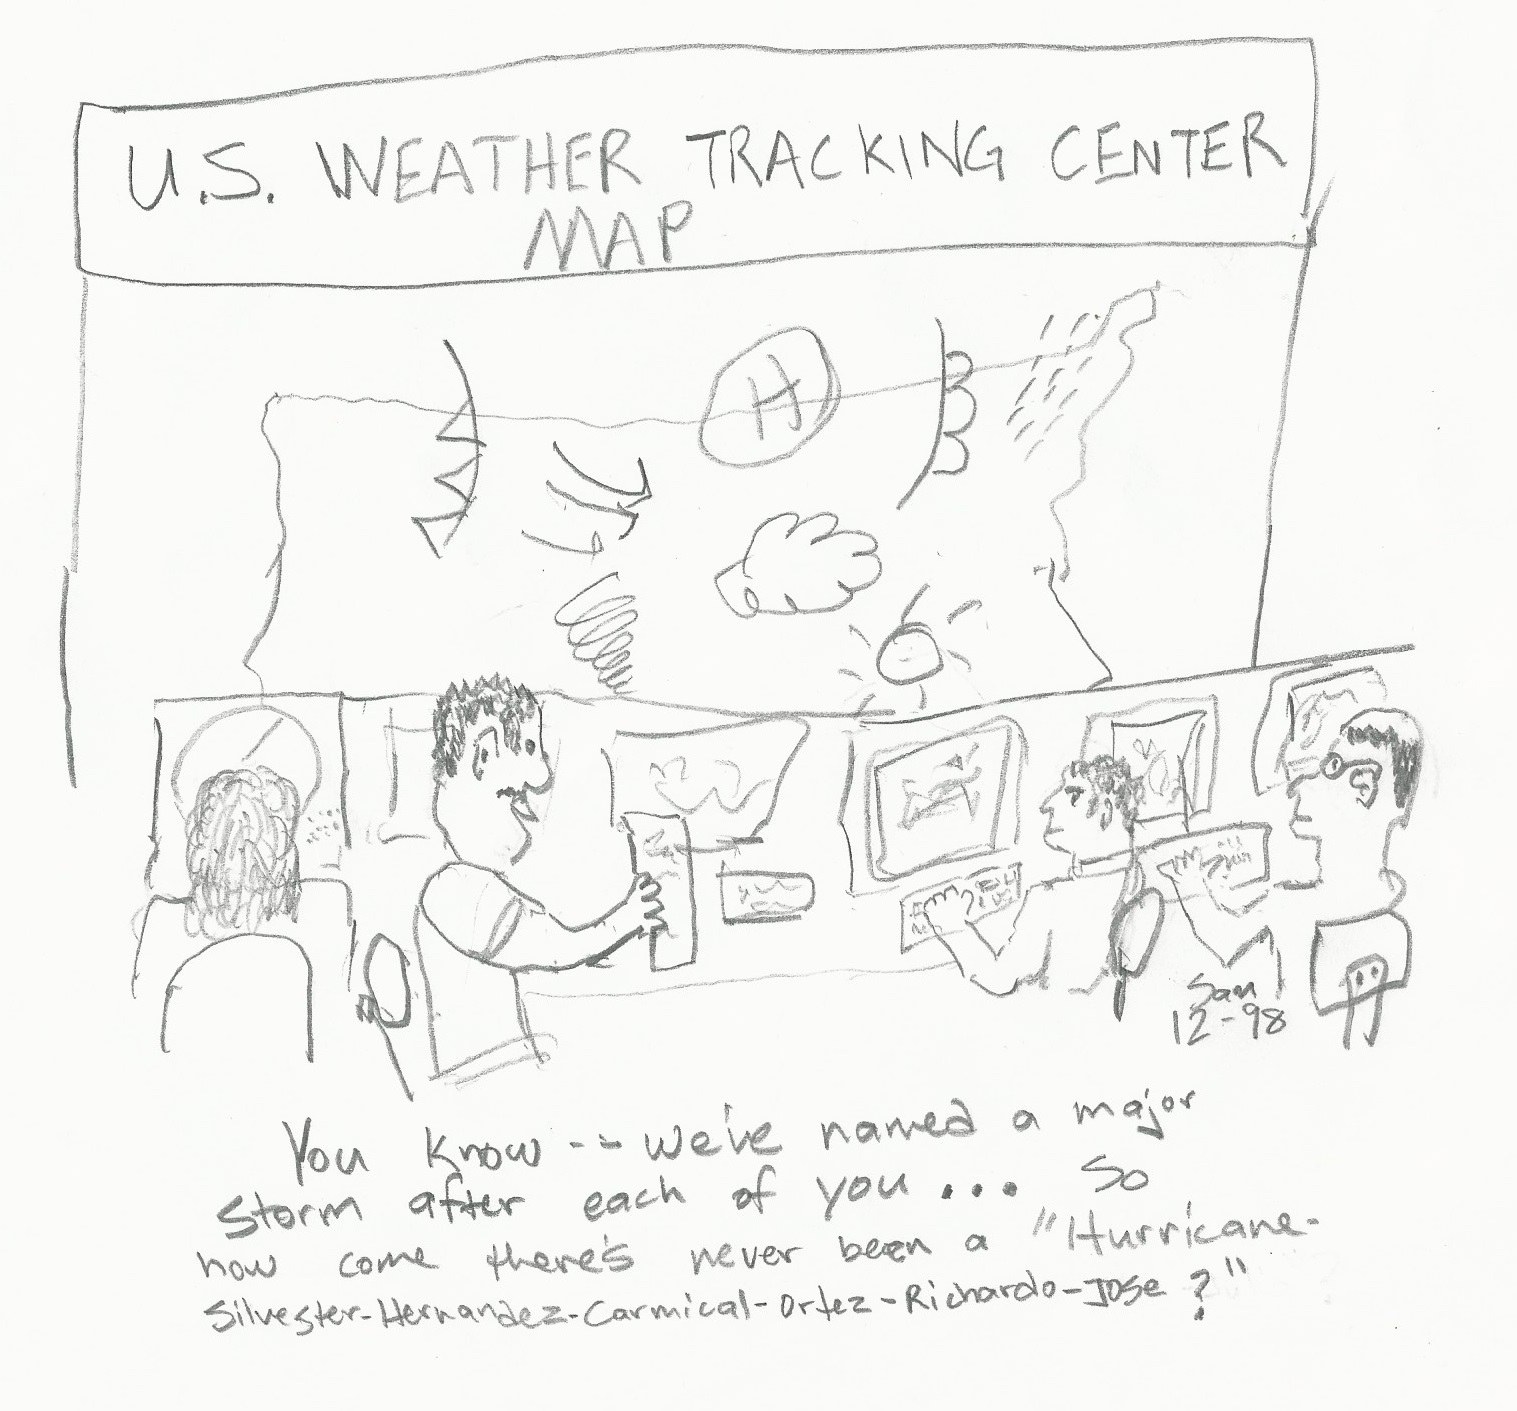 U.S. WEATHER TRACKING CENTER
MAP
H
San
12-98
You know -- we've named a major
storm after each of you ... So
how come there's never been a "Hurricane-
Silvester-Hernandez-Carmical-Ortez-Richardo-Jose?"